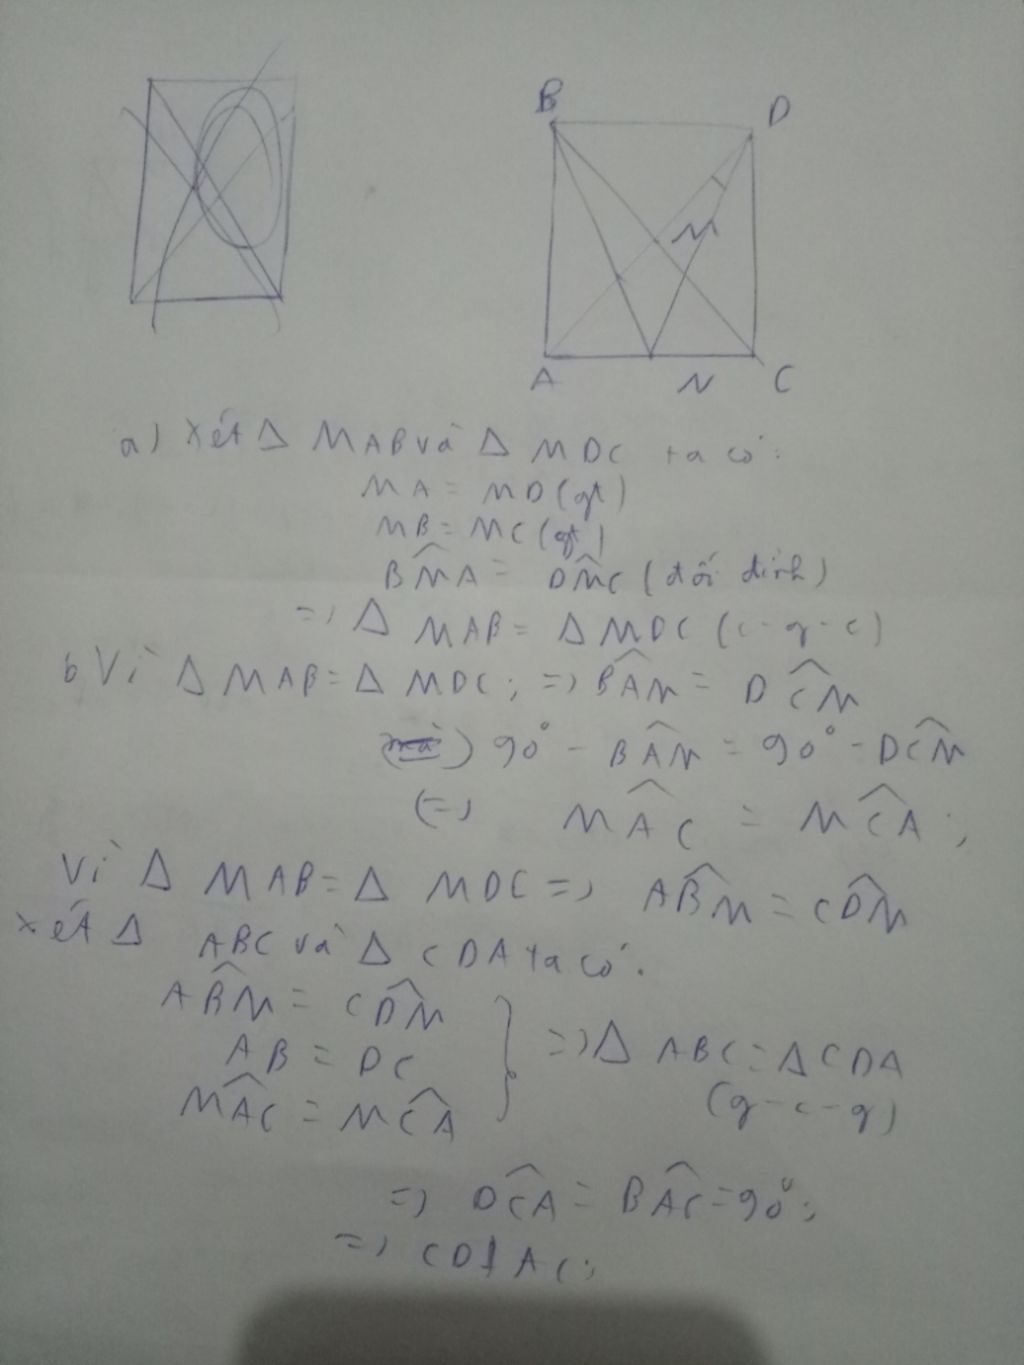 B
D
M
A
N
C
a) Xét Δ MAB và Δ MDC ta có:
MA = MD (gt)
MB = MC (gt)
BM̂A = DM̂C (đối đỉnh)
=> Δ MAB = Δ MDC (c-g-c)
b Vì Δ MAB = Δ MDC; => BÂM = DĈM
90° - BÂM = 90° - DĈM
(=> MÂC = MĈA;
Vì Δ MAB = Δ MDC => AB̂M = CD̂M
xét Δ ABC và Δ CDA ta có.
AB̂M = CD̂M
AB = DC
MÂC = MĈA
=> Δ ABC = Δ CDA
(g-c-g)
=> DĈA = BÂC = 90°;
=> CD ⊥ AC;